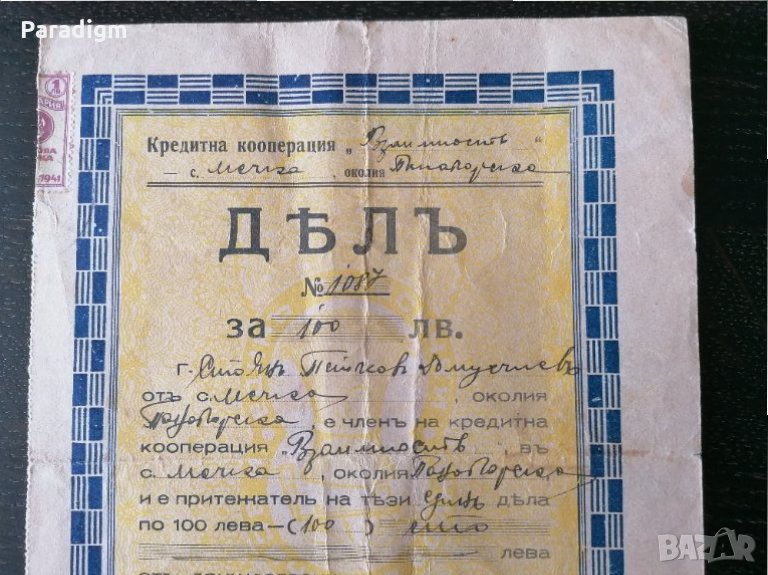 Paradigm
1
1941
Кредитна кооперация „Взаимность“
с. Мечка, околия
ДѢЛЪ
№ 1087
за 100 лв.
г. Стоянъ Петков
отъ с. Мечка, околия
, е членъ на кредитна
кооперация „Взаимность", въ
с. Мечка, околия
и е притежатель на тѣзи единъ дѣла
по 100 лева—(100) сто
лева
BAZAR